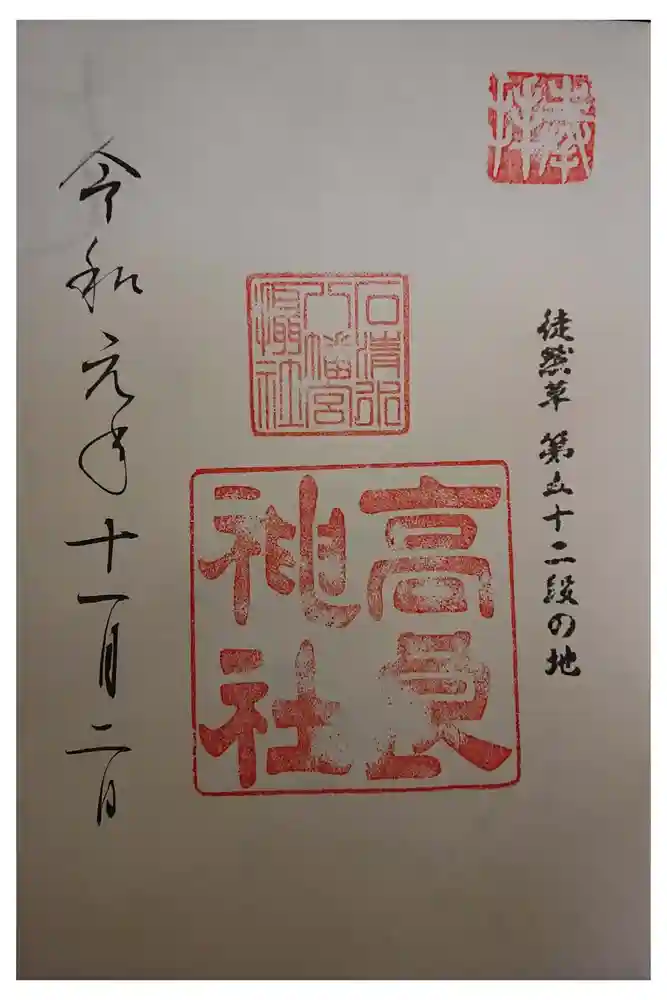 奉拝
徒然草 第五十二段の地
石清水
八幡宮
摂社
高良
神社
令和元年十一月二日